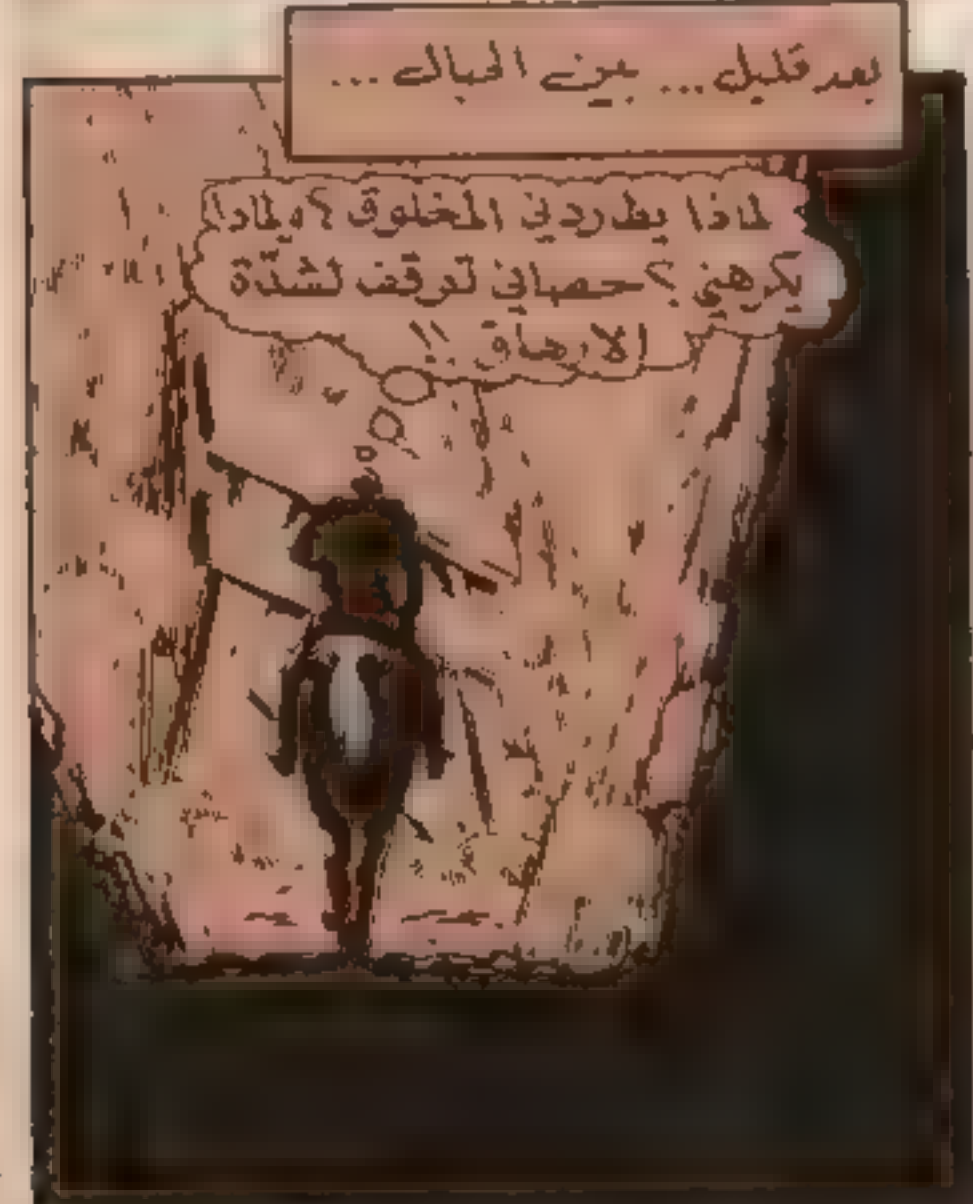 بعد قليل... بين الجبال ...
لماذا يطاردني المخلوق؟ ولماذا
يكرهني؟ حصاني توقف لشدّة
الارهاق !!